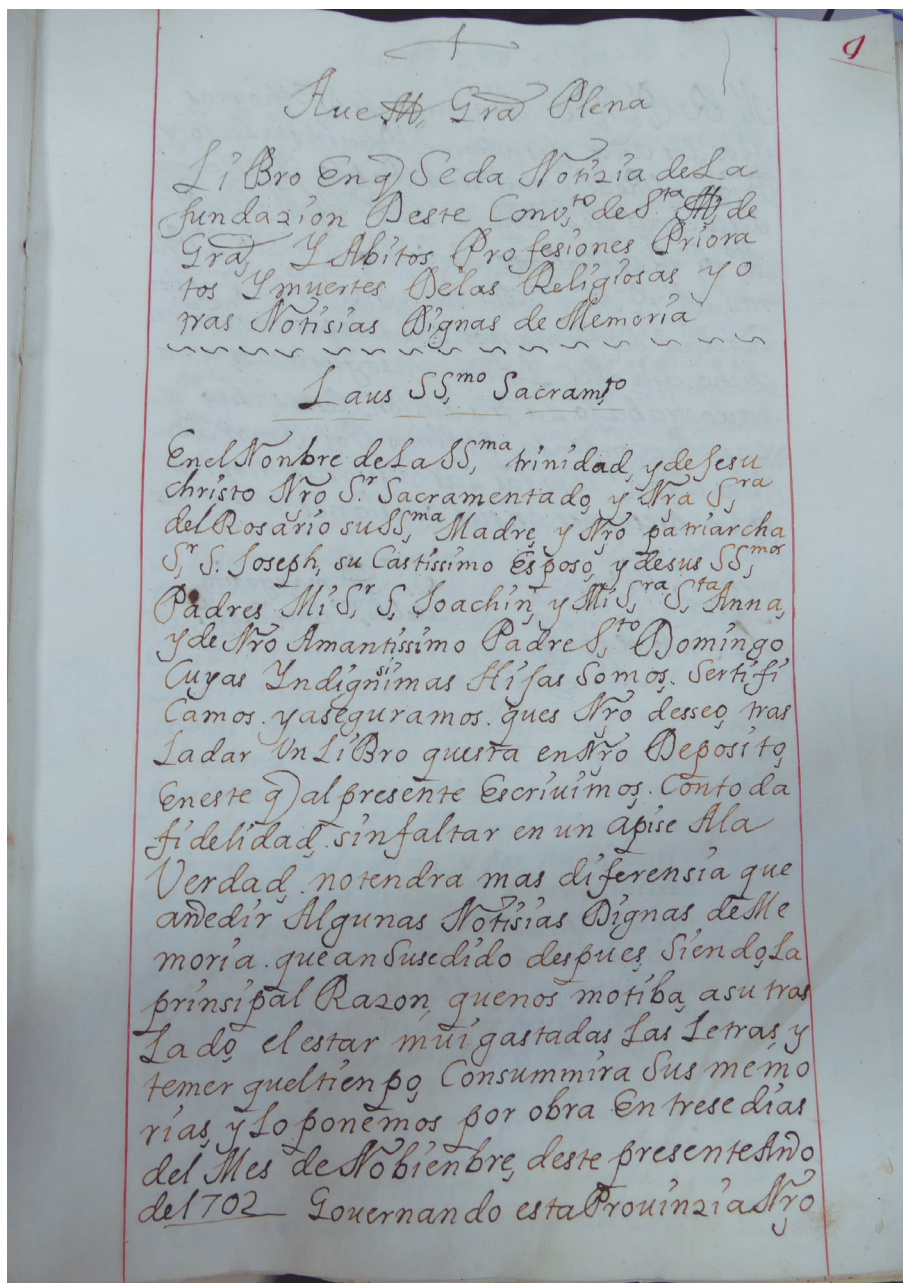 1
Aue M, Gra Plena
Li Bro Enq Se da Notizia de La
fundazion Deste Conv,to de S,ta M, de
Gra, Y Abitos Profesiones Priora
tos Y muertes De las Religiosas y o
tras Notisias Dignas de Memoria
Laus SS,mo Sacram,to
En el Nonbre de La SS,ma trinidad, y de Jesu
christo Nro S.r Sacramentado, y Nra S,ra
del Rosario su SS,ma Madre, y Nro patriarcha
S,r S. Joseph, su Castissimo Esposo, y de sus SS,mos
Padres Mi S,r S, Joachin, y Mi S,ra S,ta Anna,
y de Nro Amantissimo Padre S,to Domingo
Cuyas Yndignisimas Hijas Somos. Sertifi
Camos. y aseguramos. ques Nro desseo, tras
Ladar Un LiBro questa en Nro Deposito,
En este q) al presente Escrivimos. Con toda
fidelidad, sin faltar en un apise A la
Verdad, no tendra mas diferensia que
añedir Algunas Notisias Dignas de Me
moria. que an Susedido despues, Siendo, La
prinsipal Razon, que nos motiba, a su tras
Lado, el estar mui gastadas Las Letras, y
temer quel tienpo, Consummira Sus memo
rias, y Lo ponemos por obra En trese dias
del Mes de Nobienbre, deste presente Año
de 1702 Governando esta Provinzia Nro